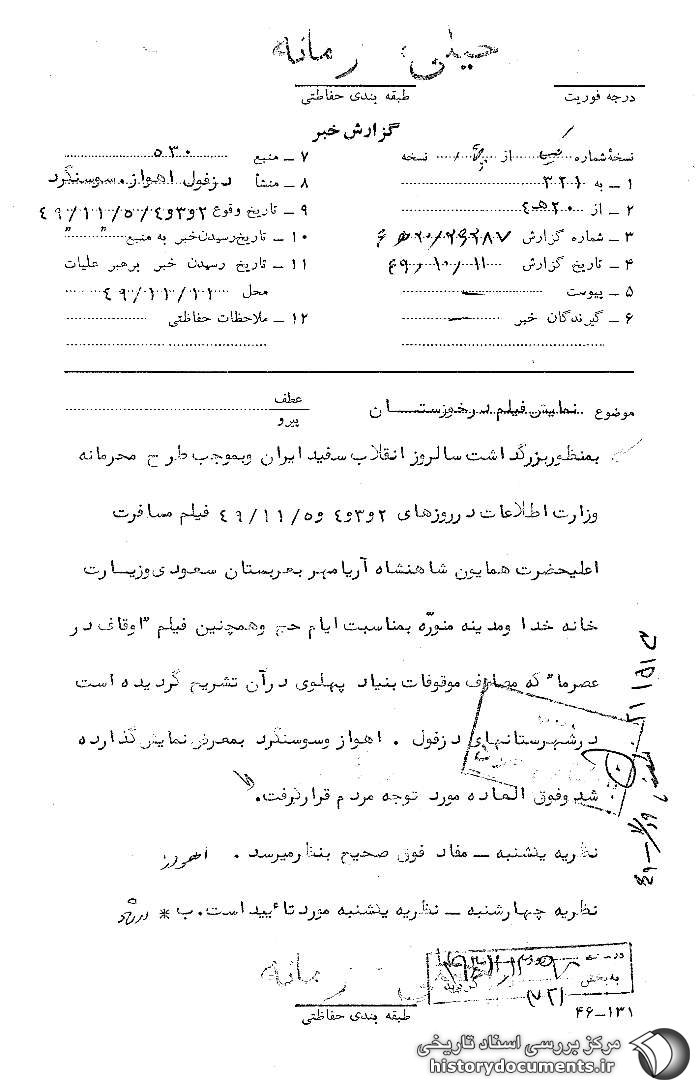 خیلی محرمانه
درجه فوریت
طبقه بندی حفاظتی
گزارش خبر
نسخهٔ شماره از نسخه
۱ ـ به ۳۲۱
۲ ـ از ۲۰ هـ ۴
۳ ـ شماره گزارش
۴ ـ تاریخ گزارش
۵ ـ پیوست —
۶ ـ گیرندگان خبر —
۷ ـ منبع ۵۳۰
۸ ـ منشأ دزفول اهواز. سوسنگرد
۹ ـ تاریخ وقوع ۲و۳و۴و۴۹/۱۱/۵
۱۰ ـ تاریخ رسیدن خبر به منبع " "
۱۱ ـ تاریخ رسیدن خبر برهبر عملیات
محل ۴۹/۱۱/۱۱
۱۲ ـ ملاحظات حفاظتی
موضوع نمایش فیلم در خوزستــــان
عطف
پیرو
بمنظور بزرگداشت سالروز انقلاب سفید ایران وبموجب طرح محرمانه
وزارت اطلاعات در روزهای ۲و۳و۴ و۴۹/۱۱/۵ فیلم مسافرت
اعلیحضرت همایون شاهنشاه آریامهر بعربستان سعودی وزیارت
خانه خدا ومدینه منوّره بمناسبت ایام حج وهمچنین فیلم "اوقاف در
عصرما" که مصارف موقوفات بنیاد پهلوی در آن تشریح گردیده است
در شهرستانهای دزفول . اهواز وسوسنگرد بمعرض نمایش گذارده
شد وفوق العاده مورد توجه مردم قرار گرفت.
نظریه یکشنبه ـ مفاد فوق صحیح بنظر میرسد .
نظریه چهارشنبه ـ نظریه یکشنبه مورد تأیید است. ب *
خیلی محرمانه
به بخش
طبقه بندی حفاظتی
۴۶-۱۳۱
مرکز بررسی اسناد تاریخی
historydocuments.ir